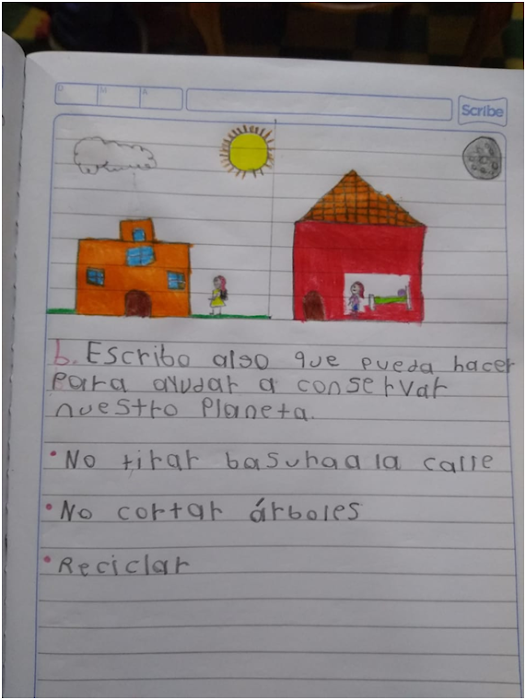 D M A
Scribe
b. Escribo algo que pueda hacer
para ayudar a conservar
nuestro Planeta.
• No tirar basuhaa la calle
• No cortar árboles
• Reciclar